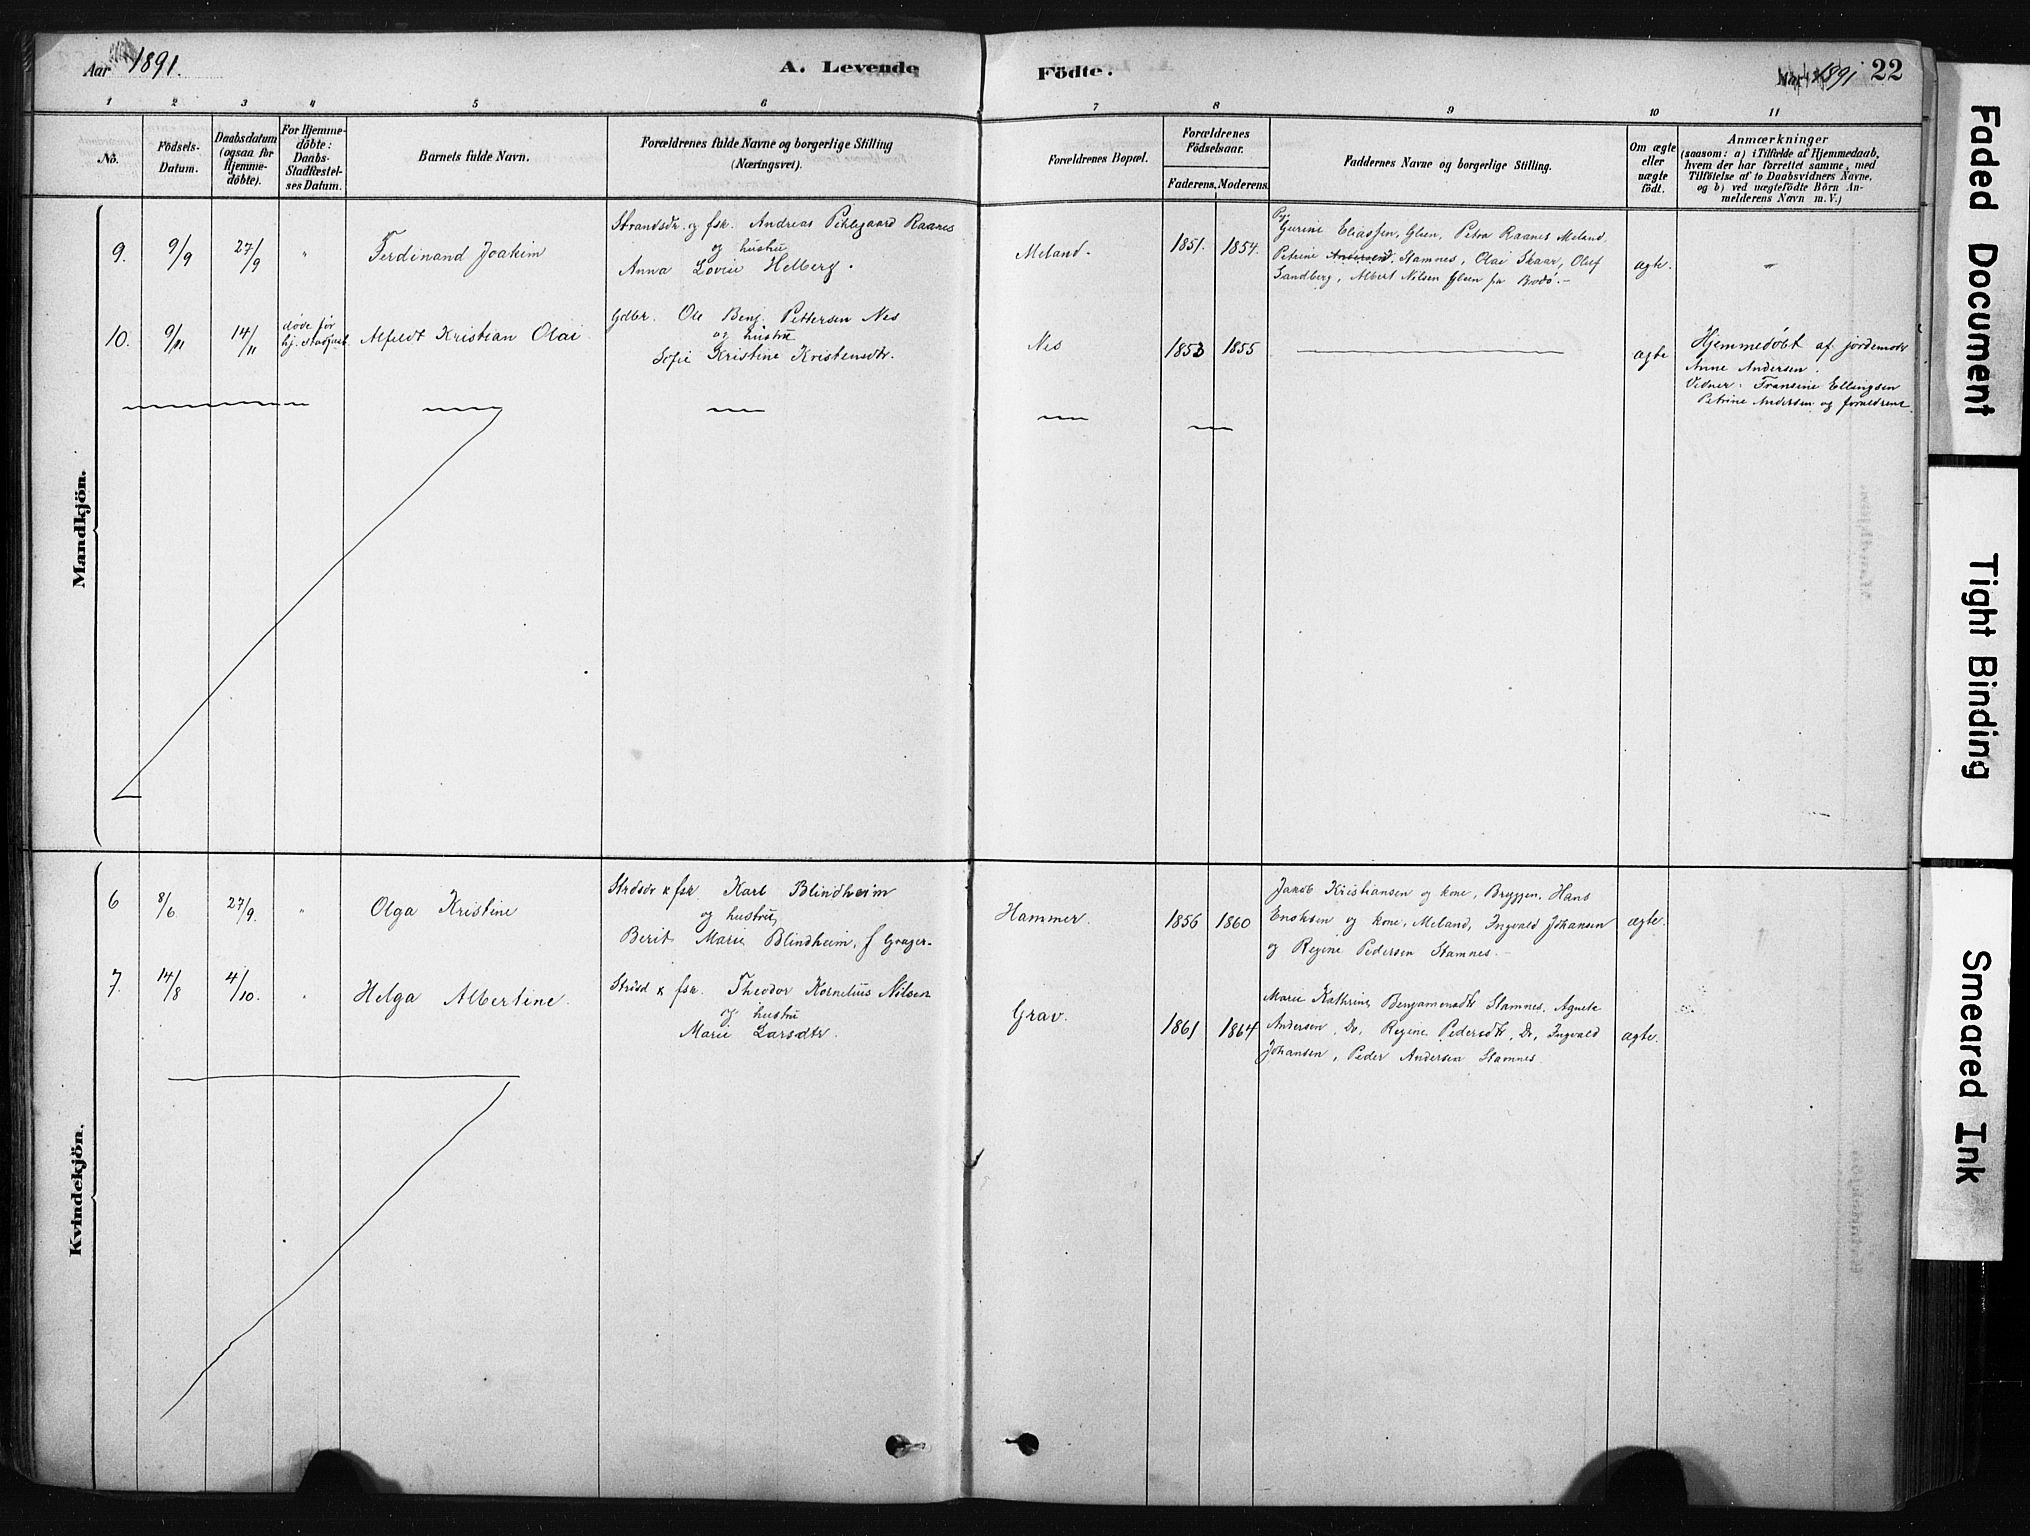 Aar 1891.
A. Levende
Födte.
Aar 1891
22
1 2 3 4 5 6 7 8 9 10 11
No.
Födsels-
Datum.
Daabsdatum
(ogsaa för
Hjemme-
döbte).
For Hjemme-
döbte:
Daabs-
Stadfæstel-
ses Datum.
Barnets fulde Navn.
Forældrenes fulde Navne og borgerlige Stilling
(Næringsvei).
Forældrenes Bopæl.
Forældrenes
Födselsaar.
Faderens. Moderens.
Faddernes Navne og borgerlige Stilling.
Om ægte
eller
uægte
födt.
Anmærkninger
(saasom: a) i Tilfælde af Hjemmedaab,
hvem der har forrettet samme, med
Tilföielse af to Daabsvidners Navne,
og b) ved uægtefödte Börn An-
melderens Navn m. V.)
Mandkjön.
9.
9/9
27/9
"
Ferdinand Joakim
Strandsdr. og fsk. Andreas Raanes
og hustru
Anna Lovise Helberg.
Meland.
1851. 1854.
Gurine Eliassen, Glein, Petra Raanes Meland,
Petrine Andersen, Stamnes, Olai Skaar, Oluf
Sandberg, Albert Nilsen Glein fra Bodø.-
ægte.
"
10.
9/11
14/11
døde før
hj. Stadfæst.
Alfeldt Kristian Olai
Gdbr. Ole Benj. Pettersen Nes
og hustru
Sofie Kristine Kristensdtr.
Nes
1853 1855
ægte
Hjemmedøbt af jordemodr
Anne Andersen.
Vidner: Fransine Ellingsen
Petrine Andersen og forældrene.
Kvindekjön.
6
8/6
27/9.
"
Olga Kristine
Strdsdr & fsk Karl Blindheim
og hustru
Berit Marie Blindheim, f
Hammer.
1856 1860
Jakob Kristiansen og kone, Bryggen, Hans
Enoksen og kone, Meland, Ingvald Johansen
og Regine Pedersen Stamnes.-
ægte.
7.
14/8
4/10.
"
Helga Albertine.
Strdsd & fsk. Theodor Kornelius Nilsen
og hustru
Marie Larsdtr.
Grav.
1861 1864
Marie Kathrine Benjaminsdtr Stamnes, Agnete
Andersen, Do, Regine Pedersdtr, Do, Ingvald
Johansen, Peder Andersen Stamnes.
ægte.
Faded Document
Tight Binding
Smeared Ink